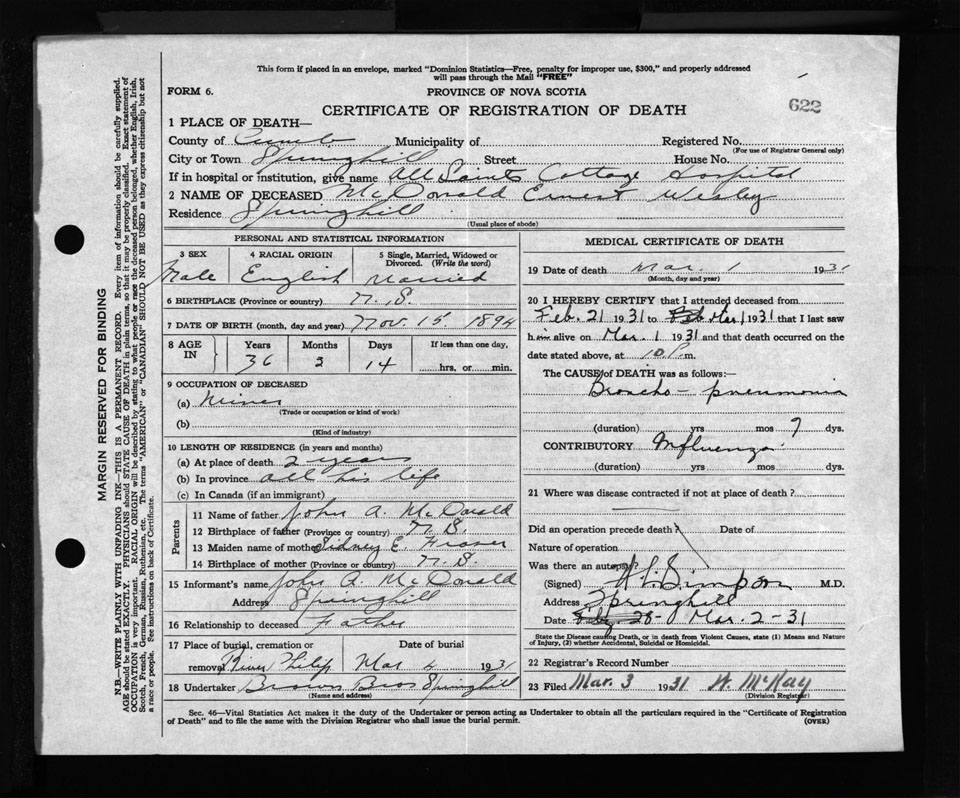 This form if placed in an envelope, marked "Dominion Statistics—Free, penalty for improper use, $300," and properly addressed
will pass through the Mail "FREE"
FORM 6.
PROVINCE OF NOVA SCOTIA
622
CERTIFICATE OF REGISTRATION OF DEATH
1 PLACE OF DEATH—
County of Cumb Municipality of Registered No.
(For use of Registrar General only)
City or Town Springhill Street House No.
If in hospital or institution, give name All Saints Cottage Hospital
2 NAME OF DECEASED McDonald Ernest Wesley
Residence Springhill
(Usual place of abode)
PERSONAL AND STATISTICAL INFORMATION
3 SEX 4 RACIAL ORIGIN 5 Single, Married, Widowed or
Divorced. (Write the word)
Male English Married
6 BIRTHPLACE (Province or country) N. S.
7 DATE OF BIRTH (month, day and year) Nov. 15. 1894
8 AGE IN Years Months Days If less than one day,
36 3 14 hrs. or min.
9 OCCUPATION OF DECEASED
(a) Miner
(Trade or occupation or kind of work)
(b)
(Kind of industry)
10 LENGTH OF RESIDENCE (in years and months)
(a) At place of death 2 years
(b) In province all his life
(c) In Canada (if an immigrant)
Parents
11 Name of father John A. McDonald
12 Birthplace of father (Province or country) N. S.
13 Maiden name of mother Sidney E. Fraser
14 Birthplace of mother (Province or country) N. S.
15 Informant's name John A. McDonald
Address Springhill
16 Relationship to deceased Father
17 Place of burial, cremation or Date of burial
removal River Philip Mar 4 1931
18 Undertaker Brown Bros Springhill
(Name and address)
MEDICAL CERTIFICATE OF DEATH
19 Date of death Mar. 1 1931
(Month, day and year)
20 I HEREBY CERTIFY that I attended deceased from
Feb. 21 1931 to Feb Mar 1 1931 that I last saw
him alive on Mar. 1 1931 and that death occurred on the
date stated above, at 10 P.m.
The CAUSE of DEATH was as follows:—
Broncho-pneumonia
(duration) yrs mos 7 dys.
CONTRIBUTORY Influenza
(duration) yrs mos dys.
21 Where was disease contracted if not at place of death?
Did an operation precede death? Date of
Nature of operation
Was there an autopsy?
(Signed) Simpson M.D.
Address Springhill
Date Feb 28- Mar. 2-31
State the Disease causing Death, or in death from Violent Causes, state (1) Means and Nature
of Injury, (2) whether Accidental, Suicidal or Homicidal.
22 Registrar's Record Number
23 Filed Mar. 3 1931 W. McKay
(Division Registrar)
Sec. 46—Vital Statistics Act makes it the duty of the Undertaker or person acting as Undertaker to obtain all the particulars required in the "Certificate of Registration
of Death" and to file the same with the Division Registrar who shall issue the burial permit.
(OVER)
MARGIN RESERVED FOR BINDING
N.B.—WRITE PLAINLY WITH UNFADING INK—THIS IS A PERMANENT RECORD. Every item of information should be carefully supplied.
AGE should be stated EXACTLY. PHYSICIANS should STATE CAUSE OF DEATH in plain terms, so that it may be properly classified. Exact statement of
OCCUPATION is very important. RACIAL ORIGIN will be described by stating to what people or race the deceased person belonged, whether English, Irish,
Scotch, French, German, Russian, Ruthenian, etc. The terms "AMERICAN" or "CANADIAN" SHOULD NOT BE USED as they express citizenship but not
a race or people. See instructions on back of Certificate.